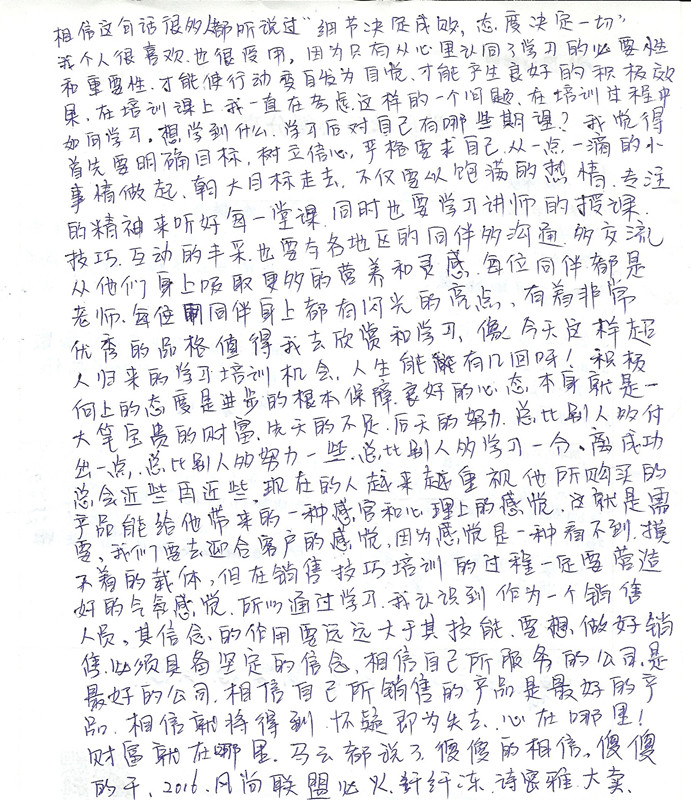 相信这句话很多人都听说过"细节决定成败,态度决定一切"
我个人很喜欢.也很受用,因为只有从心里认同了学习的必要性
和重要性.才能使行动变自发为自觉.才能产生良好的积极效
果.在培训课上我一直在考虑这样的一个问题.在培训过程中
如何学习.想学到什么.学习后对自己有哪些期望?我觉得
首先要明确目标,树立信心,严格要求自己.从一点一滴的小
事情做起.朝大目标走去.不仅要以饱满的热情.专注
的精神来听好每一堂课.同时也要学习讲师的授课.
技巧.互动的丰采.也要与各地区的同伴多沟通多交流
从他们身上吸取更多的营养和灵感.每位同伴都是
老师.每位同伴身上都有闪光的亮点、有着非常
优秀的品格值得我去欣赏和学习,像今天这样超
人归来的学习培训机会,人生能有几回呀!积极
向上的态度是进步的根本保障.良好的心态.本身就是一
大笔宝贵的财富.先天的不足.后天的努力.总比别人多付
出一点,总比别人多努力一些.总比别人多学习一分.离成功
总会近些再近些.现在的人越来越重视他所购买的
产品能给他带来的一种感官和心理上的感觉,这就是需
要,我们要去迎合客户的感觉,因为感觉是一种看不到.摸
不着的载体,但在销售技巧培训的过程一定要营造
好的气氛感觉.所以通过学习.我认识到作为一个销售
人员,其信念的作用要远远大于其技能.要想做好销
售.必须具备坚定的信念,相信自己所服务的公司.是
最好的公司.相信自己所销售的产品是最好的产
品.相信就将得到.怀疑即为失去.心在哪里!
财富就在哪里.马云都说了傻傻的相信,傻傻
的干、2016.风尚联盟必火.纤纤冻.诗密雅大卖.